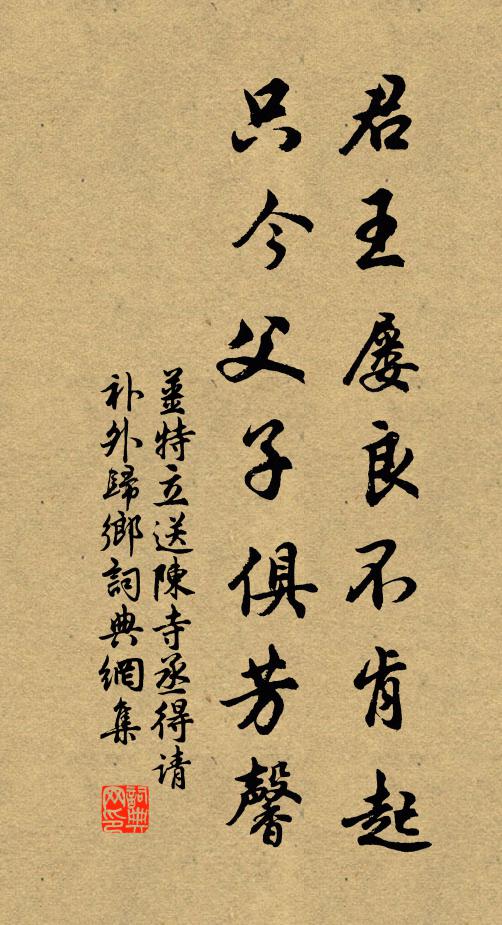 君王屡良不肯起
只今父子俱芳馨
姜特立送陳寺丞得请
补外歸鄉詞典網集
詞典网印